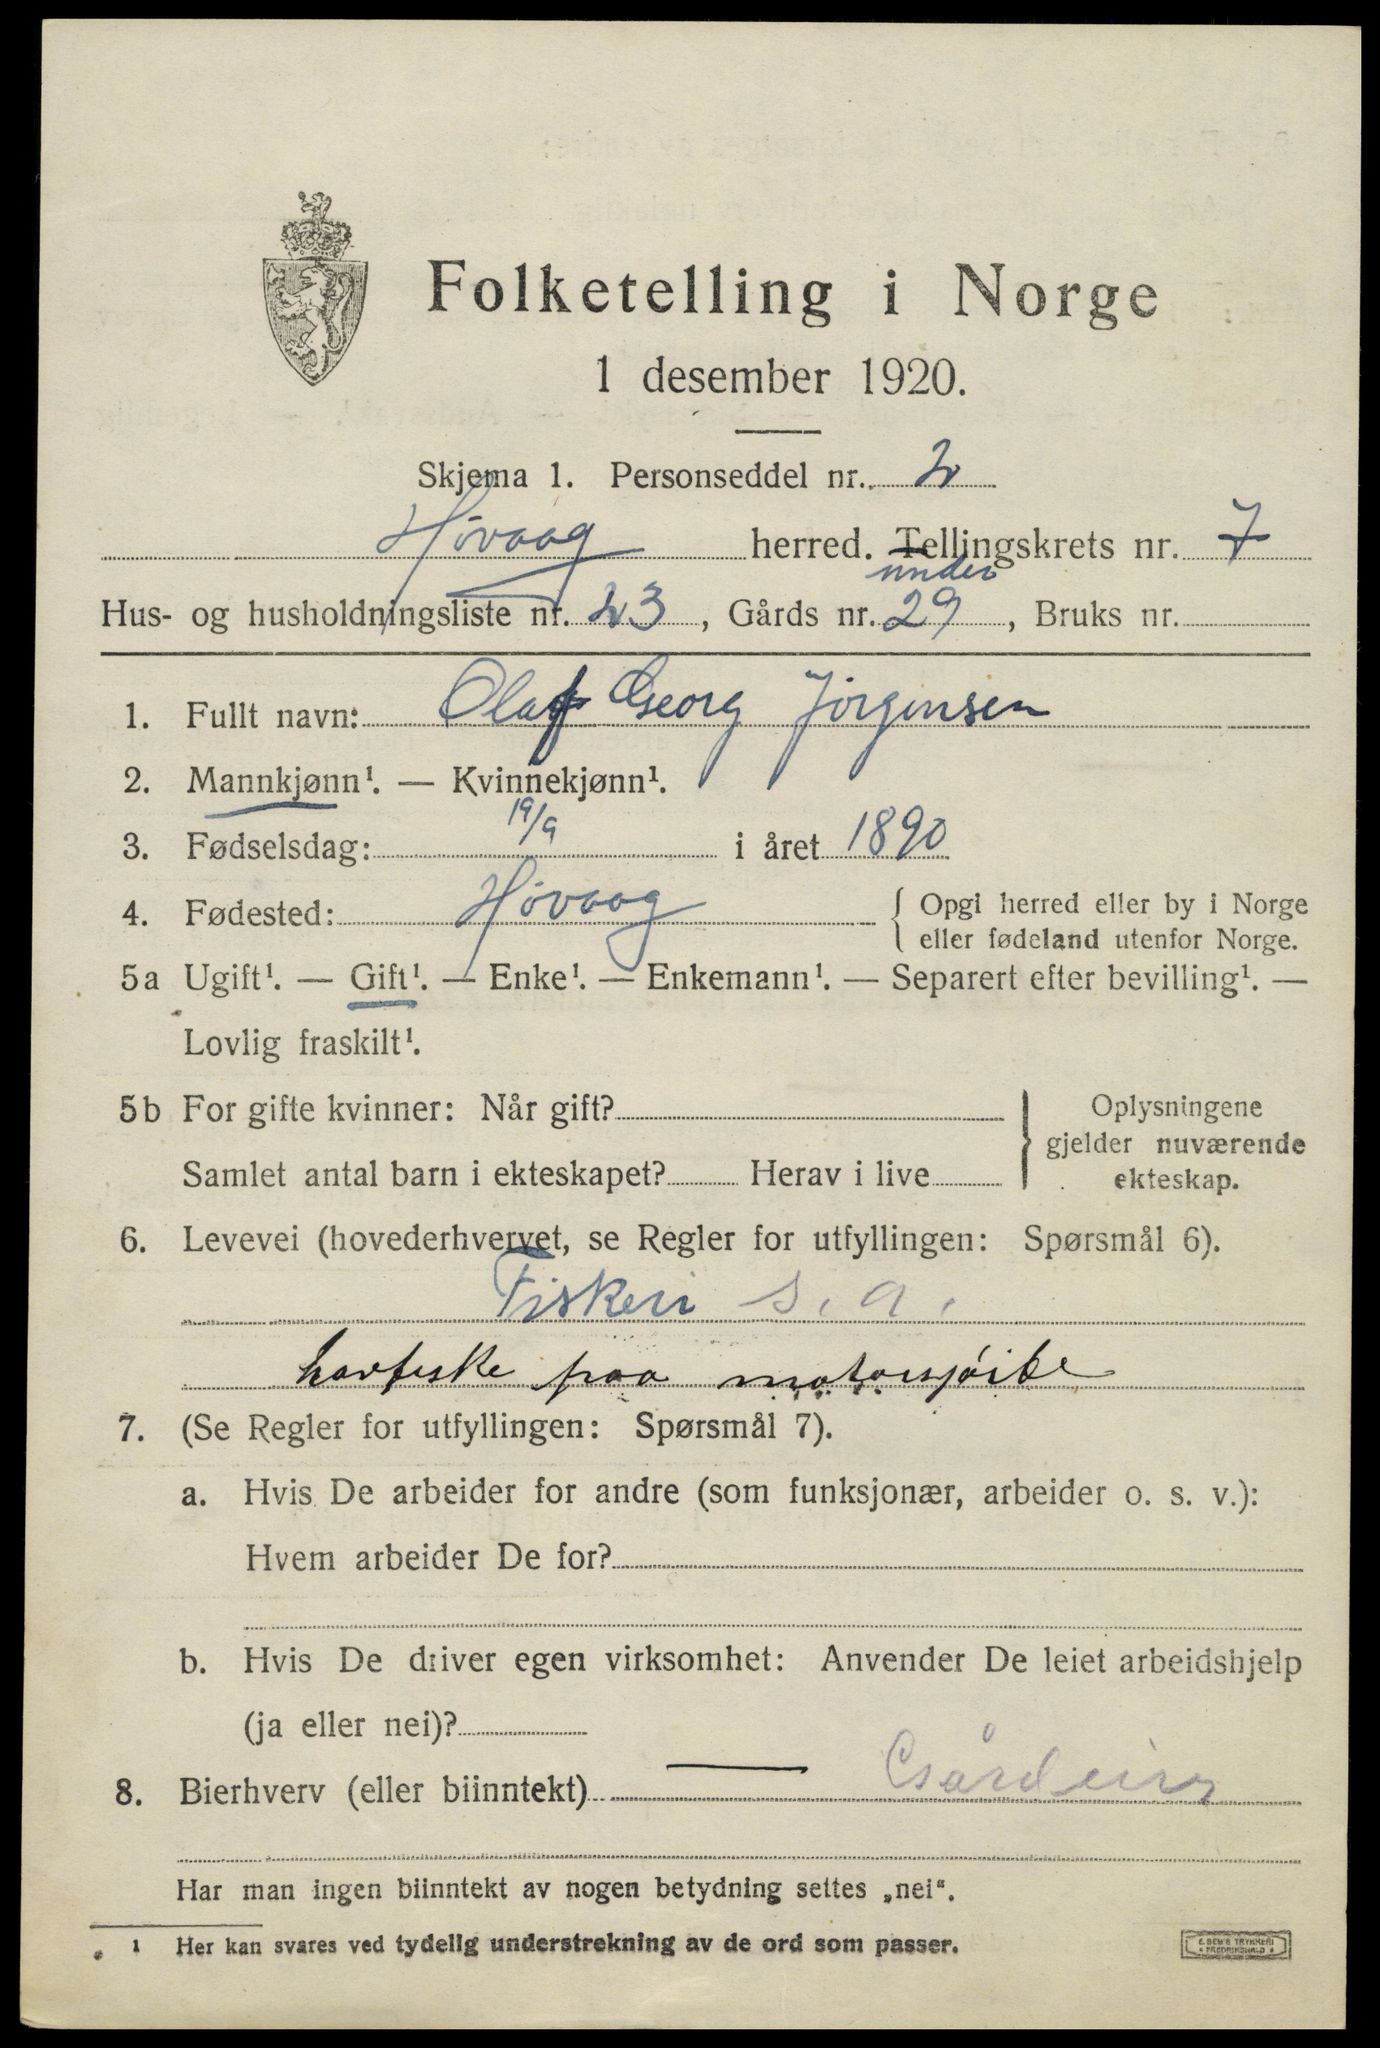 Folketelling i Norge
1 desember 1920.
Skjema 1. Personseddel nr. 2
Høvaag herred. Tellingskrets nr. 7
under
Hus- og husholdningsliste nr. 23, Gårds nr. 29, Bruks nr.
1. Fullt navn: Olaf Georg Jörgensen
2. Mannkjønn¹. — Kvinnekjønn¹.
3. Fødselsdag: 19/9 i året 1890
4. Fødested: Høvaag { Opgi herred eller by i Norge
eller fødeland utenfor Norge.
5a Ugift¹. — Gift¹. — Enke¹. — Enkemann¹. — Separert efter bevilling¹. —
Lovlig fraskilt¹.
5b For gifte kvinner: Når gift? } Oplysningene
gjelder nuværende
Samlet antal barn i ekteskapet? Herav i live
ekteskap.
6. Levevei (hovederhvervet, se Regler for utfyllingen: Spørsmål 6).
Fiskeri s. a.
havfiske paa motorsjöite
7. (Se Regler for utfyllingen: Spørsmål 7).
a. Hvis De arbeider for andre (som funksjonær, arbeider o. s. v.):
Hvem arbeider De for?
b. Hvis De driver egen virksomhet: Anvender De leiet arbeidshjelp
(ja eller nei)?
8. Bierhverv (eller biinntekt) — Gårdeier
Har man ingen biinntekt av nogen betydning settes „nei“.
¹ Her kan svares ved tydelig understrekning av de ord som passer.
E. SEM'S TRYKKERI
FREDRIKSHALD